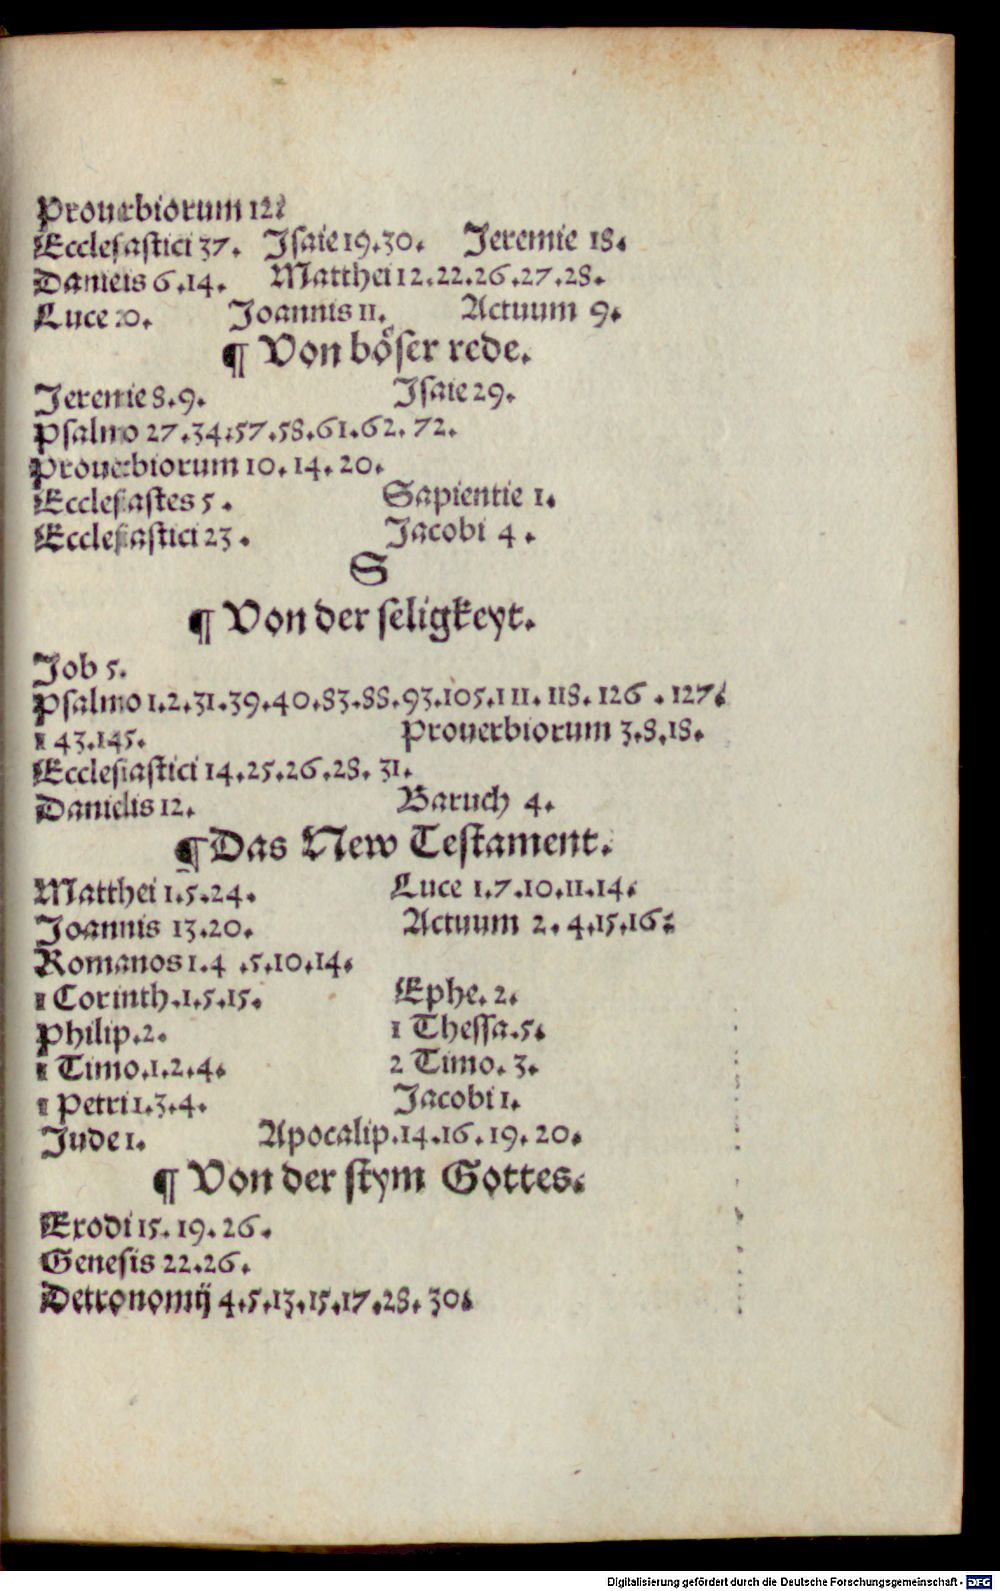 Prouerbiorum 12.
Ecclesiastici 37. Jsaie 19.30. Jeremie 18.
Danielis 6.14. Matthei 12.22.26.27.28.
Luce 20. Joannis 11. Actuum 9.
¶ Von böser rede.
Jeremie 8.9. Jsaie 29.
Psalmo 27.34.57.58.61.62.72.
Prouerbiorum 10.14.20.
Ecclesiastes 5. Sapientie 1.
Ecclesiastici 23. Jacobi 4.
S
¶ Von der seligkeyt.
Job 5.
Psalmo 1.2.31.39.40.83.88.93.105.111.118.126.127.
143.145. Prouerbiorum 3.8.18.
Ecclesiastici 14.25.26.28.31.
Danielis 12. Baruch 4.
¶ Das New Testament.
Matthei 1.5.24. Luce 1.7.10.11.14.
Joannis 13.20. Actuum 2.4.15.16.
Romanos 1.4.5.10.14.
1 Corinth.1.5.15. Ephe.2.
Philip.2. 1 Thessa.5.
1 Timo.1.2.4. 2 Timo.3.
1 Petri 1.3.4. Jacobi 1.
Jude 1. Apocalip.14.16.19.20.
¶ Von der stym Gottes.
Exodi 15.19.26.
Genesis 22.26.
Detronomij 4.5.13.15.17.28.30.
Digitalisierung gefördert durch die Deutsche Forschungsgemeinschaft - DFG